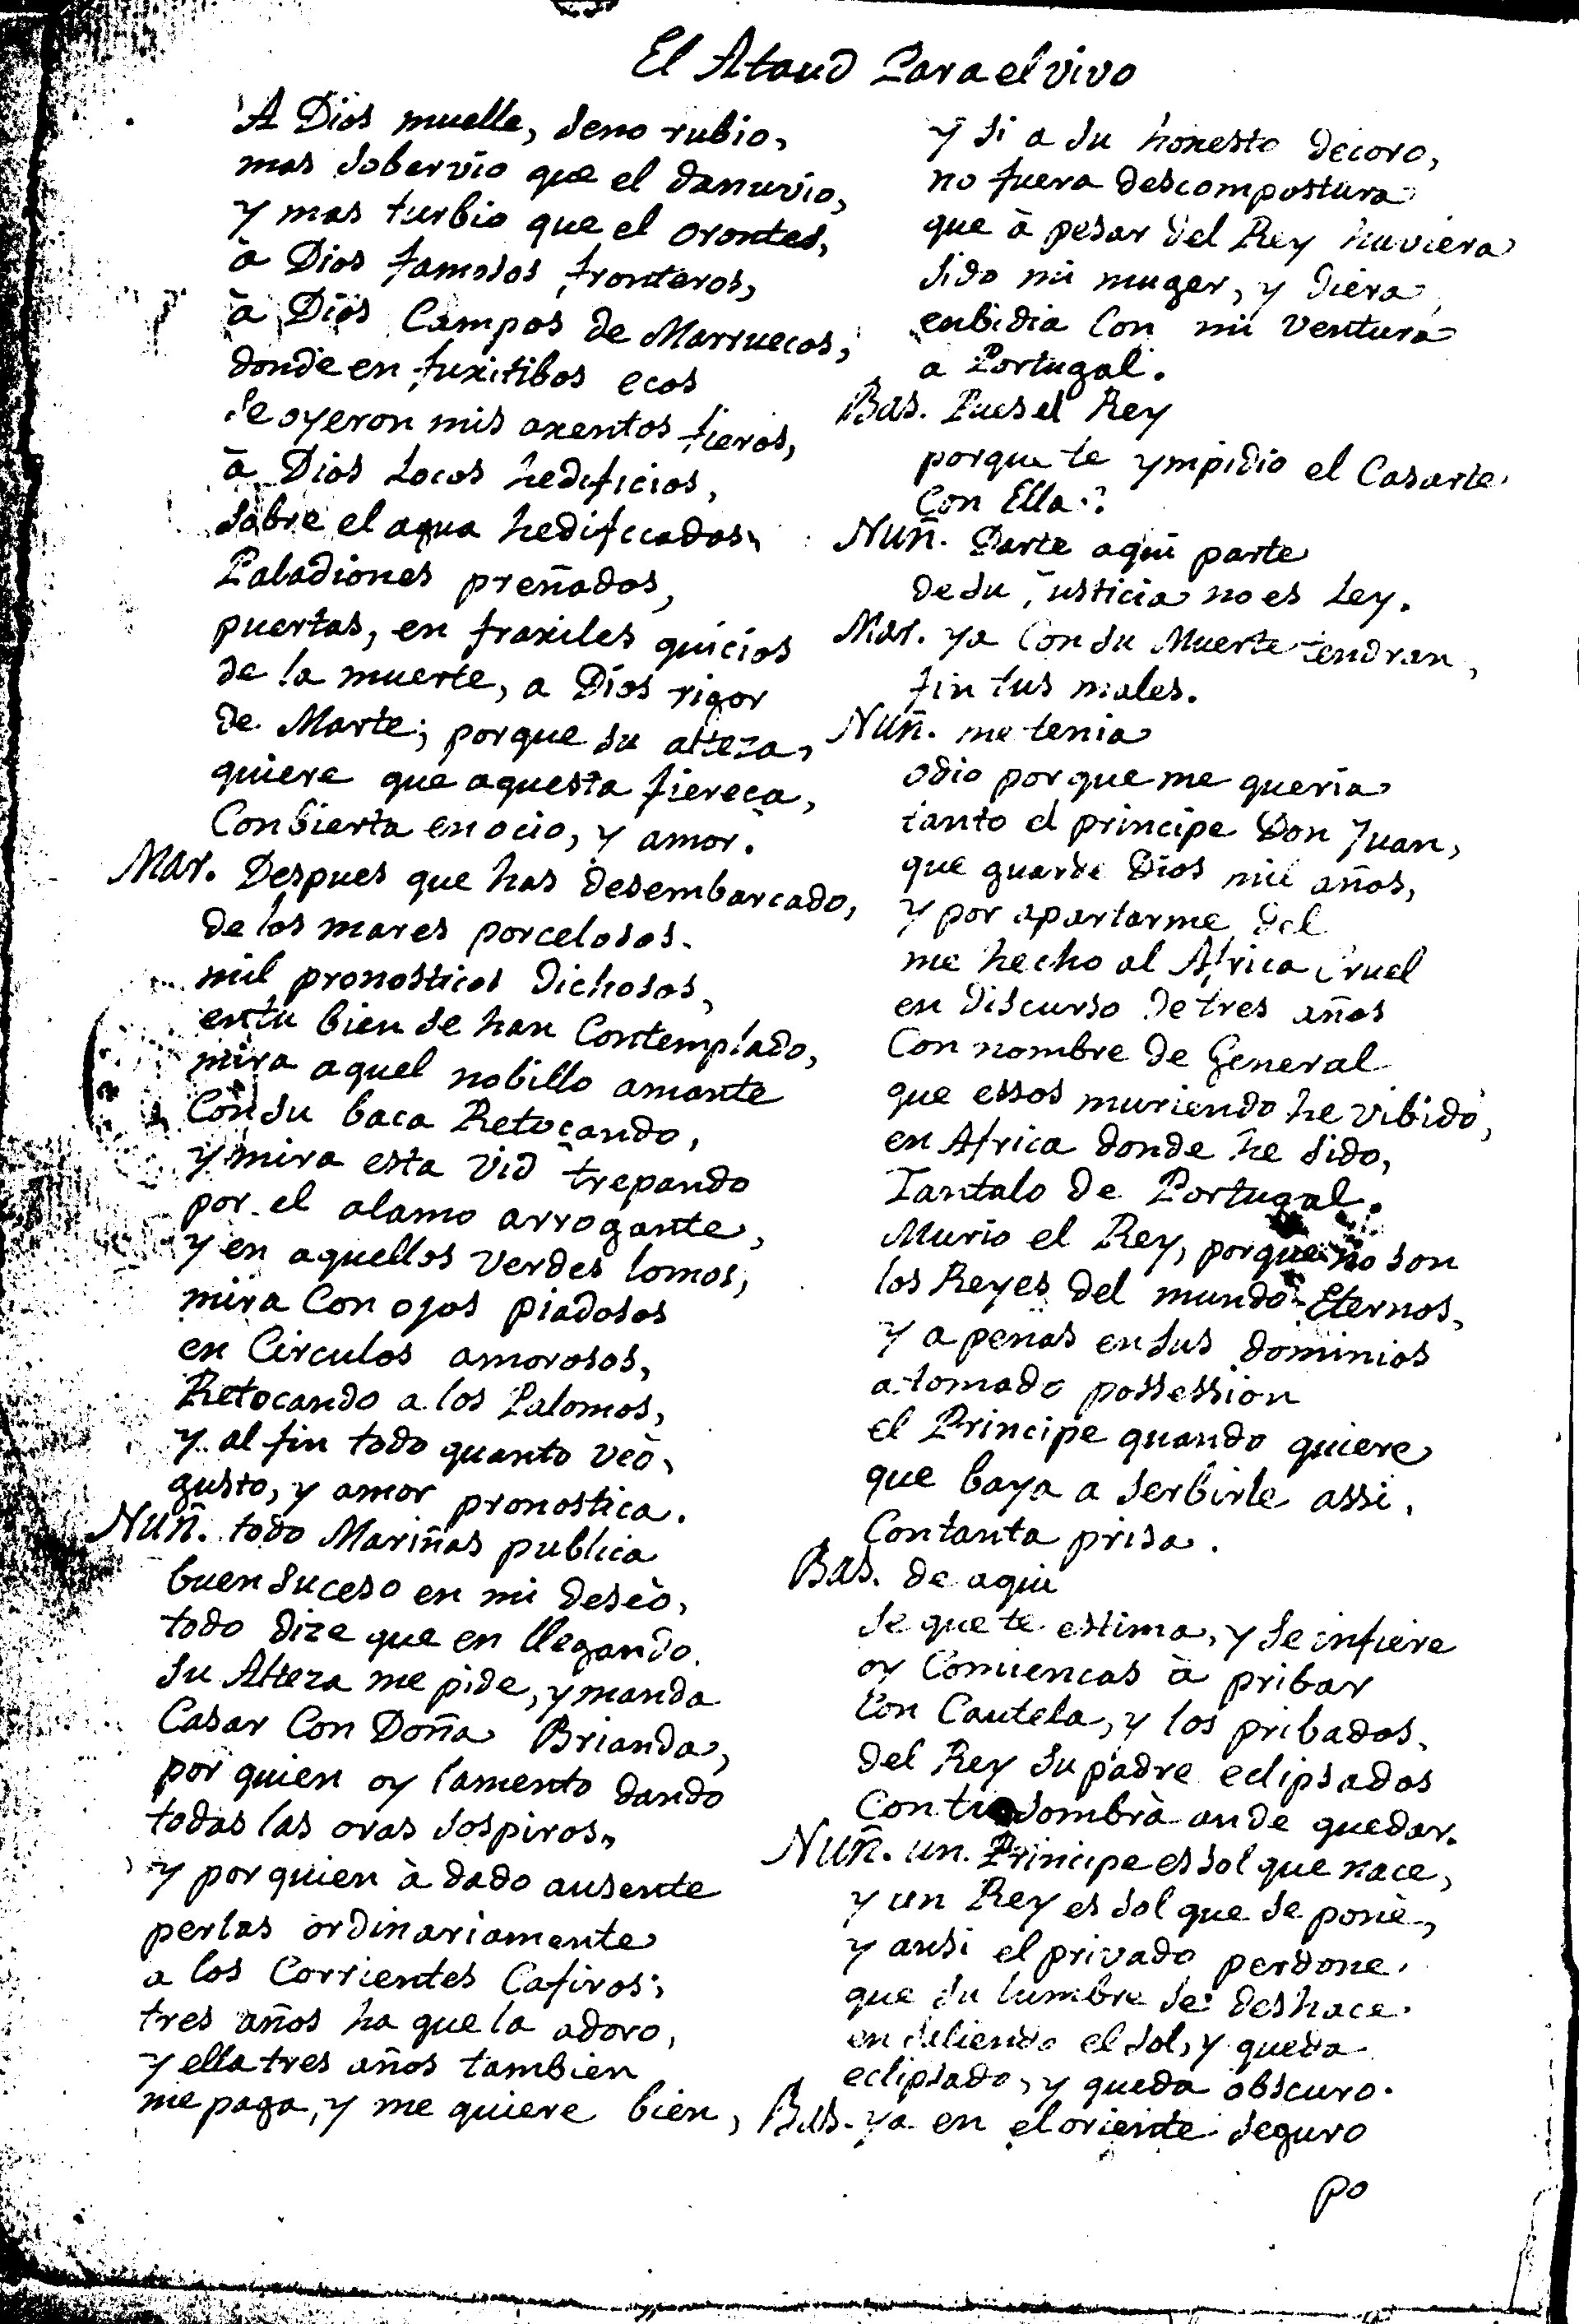 El Ataud Para el vivo
A Dios muelle, seno rubio,
mas sobervio que el danuvio,
y mas turbio que el orontes,
à Dios famosos fronteros,
à Dios Campos de Marruecos,
donde en fuxitibos ecos
se oyeron mis axentos fieros,
à Dios Locos hedificios,
sobre el agua hedificados,
Paladiones preñados,
puertas, en fraxiles quicios
de la muerte, a Dios rigor
de Marte; porque su alteza,
quiere que aquesta fiereça,
Conbierta en ocio, y amor.
Mar. Despues que has desembarcado,
de los mares porcelosos.
mil pronosticos dichosos,
en tu bien se han Contemplado,
mira aquel nobillo amante
Con su baca Retoçando,
y mira esta vid trepando
por el alamo arrogante,
y en aquellos verdes lomos,
mira Con ojos piadosos
en Circulos amorosos,
Retocando a los Palomos,
y al fin todo quanto veò,
gusto, y amor pronostica.
Nuñ. todo Mariñas publica
buen suceso en mi deseò,
todo dize que en llegando.
su Alteza me pide, y manda
Casar Con Doña Brianda,
por quien oy lamento dando
todas las oras sospiros,
y por quien à dado ausente
perlas ordinariamente
a los Corrientes Cafiros;
tres años ha que la adoro,
y ella tres años tambien
me paga, y me quiere bien,
y si a su honesto decoro,
no fuera descompostura
que à pesar del Rey huviera
sido mi muger, y diera
enbidia Con mi ventura
a Portugal.
Bas. Pues el Rey
porque te ympidio el Casarte
Con Ella?
Nuñ. Parte aqui parte
de su justicia no es Ley.
Mar. ya Con su Muerte tendran,
fin tus males.
Nuñ. me tenia
odio porque me queria
tanto el principe Don Juan,
que guarde Dios mil años,
y por apartarme del
me hecho al Africa Cruel
en discurso de tres años
Con nombre de General
que essos muriendo he vibido,
en Africa donde he sido,
Tantalo de Portugal.
Murio el Rey, porque no son
los Reyes del mundo Eternos,
y apenas en sus dominios
a tomado possession
el Principe quando quiere
que baya a serbirle assi,
Con tanta prisa.
Bas. de aqui
se que te estima, y se infiere
oy Comiencas à pribar
Con Cautela, y los pribados,
del Rey su padre eclipsados
Con tu sombrà an de quedar.
Nuñ. un Principe es sol que nace,
y un Rey es sol que se ponè,
y ansi el privado perdone.
que su lumbre se deshace.
en saliendo el sol, y queda
eclipsado, y queda obscuro.
Bas. ya en el oriente seguro
po